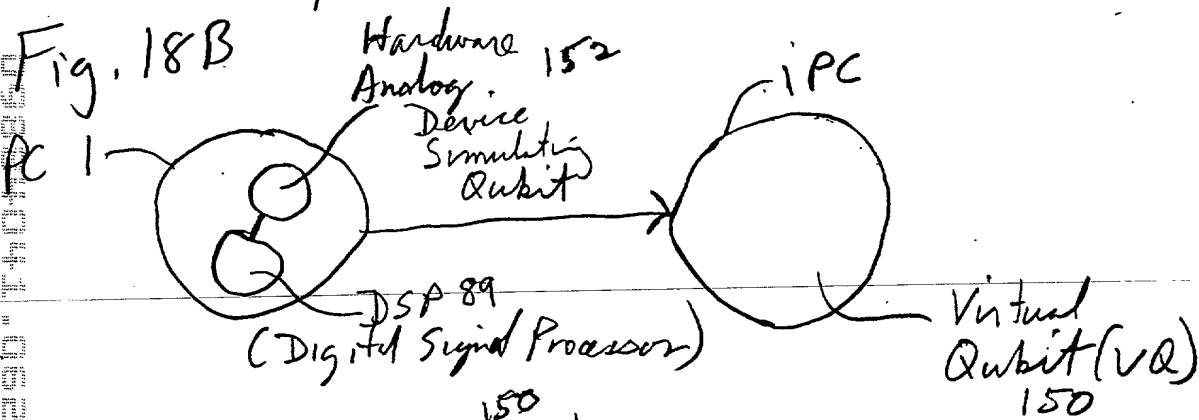 Fig. 18B
Hardware
Analog 152
Device
Simulating
Qubit
iPC
PC 1
DSP 89
(Digital Signal Processor)
Virtual
Qubit (VQ)
150
150